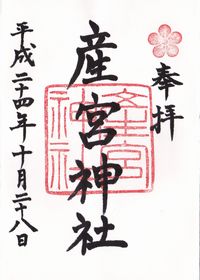 奉拝
産宮神社
産宮
神社
平成二十四年十月二十八日